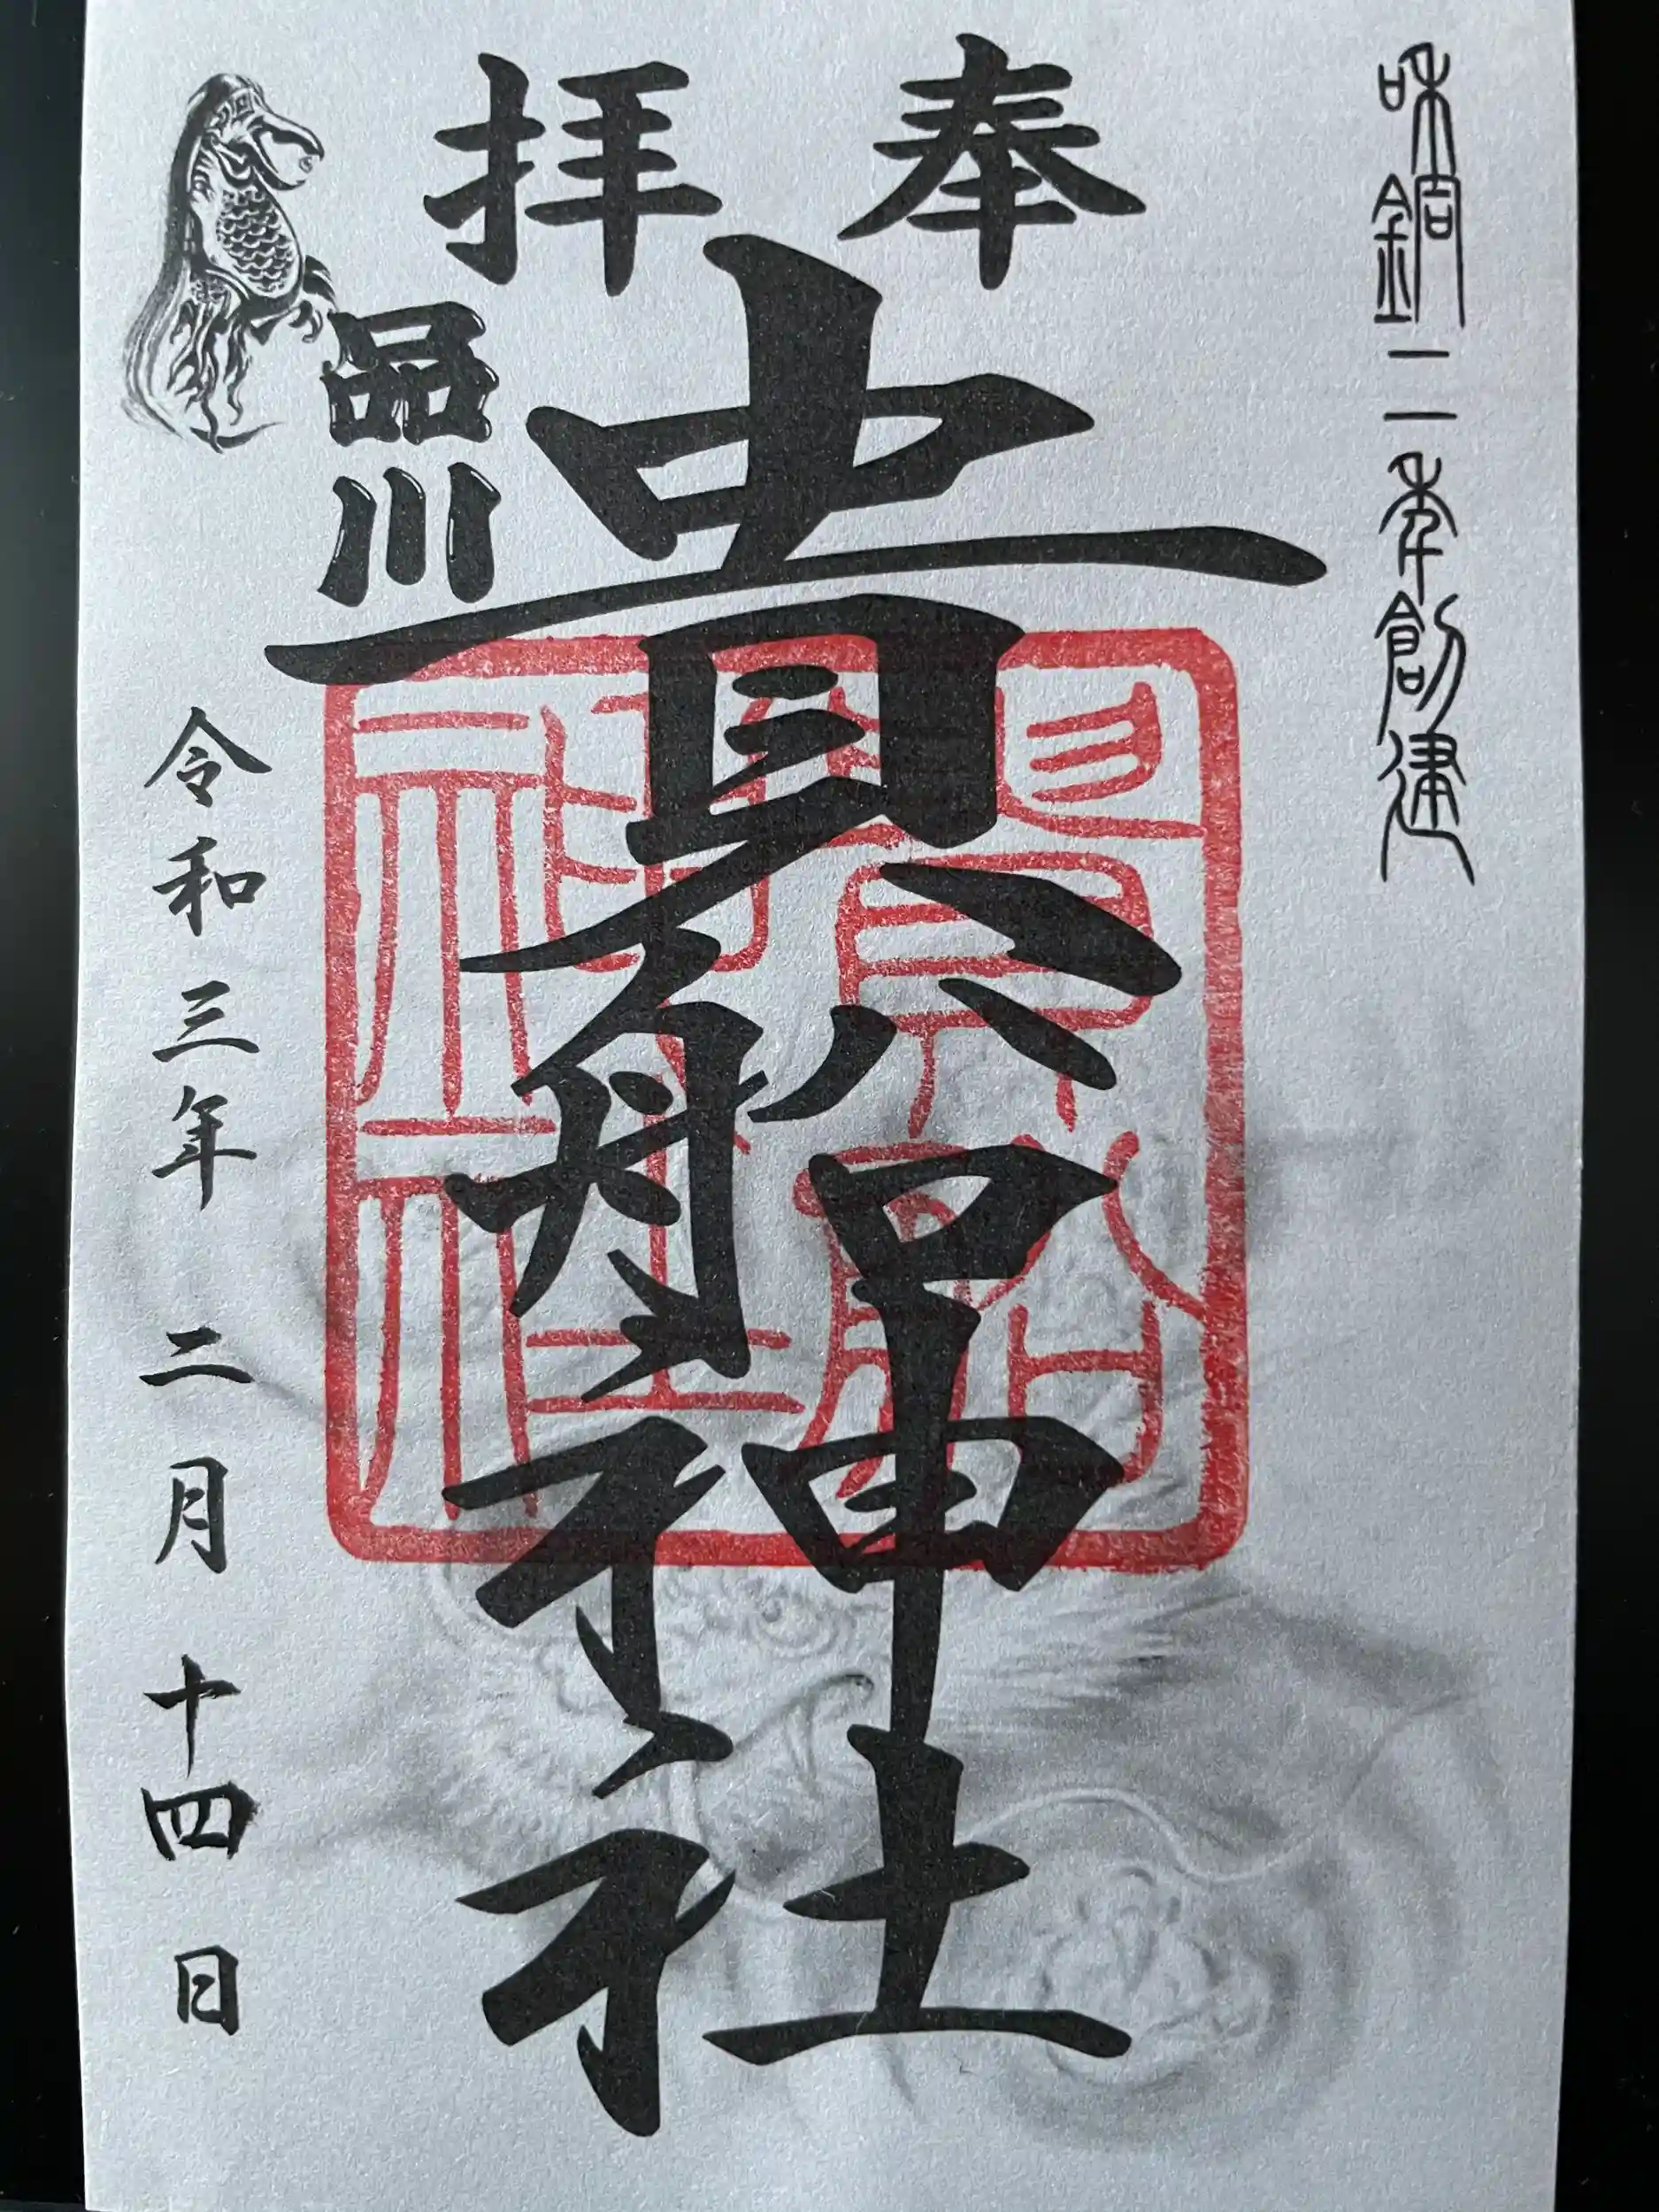 和銅二年創建
奉拝
貴船神社
貴船神社
品川
令和三年二月十四日